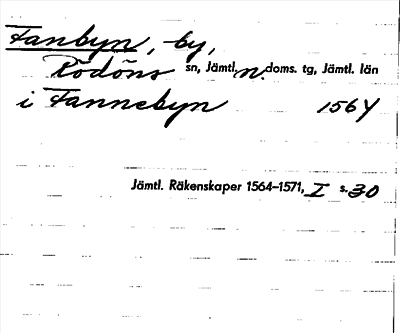 Fanbyn, by,
Rödöns sn, Jämtl. n. doms. tg, Jämtl. län
i Fannebyn 1564
Jämtl. Räkenskaper 1564–1571, I s. 30